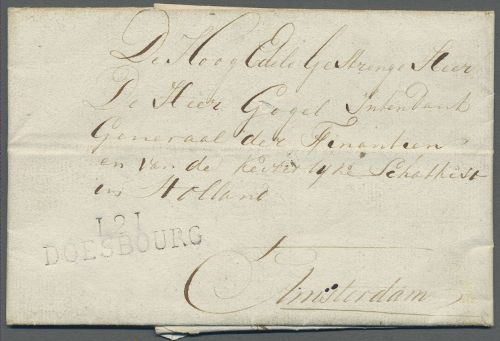 De Hoog Edele Gestrenge Heer
De Heer Gogel Intendant
Generaal der Finantien
en van de keizerlyke Schatkist
in Holland
121
DOESBOURG
Amsterdam